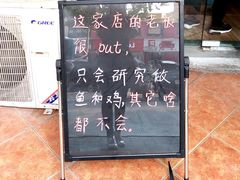 GREE
这家店的老板
很"out,"
只会研究做
鱼和鸡,其它啥
都不会。